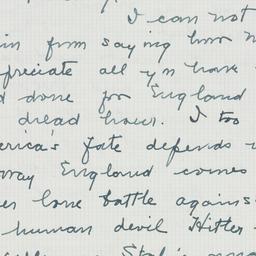 I can not
in from saying how
preciate all yn have
d done for England
dread hour. I too
erica's fate depends
way England comes
er lone battle agains
human devil Hitler